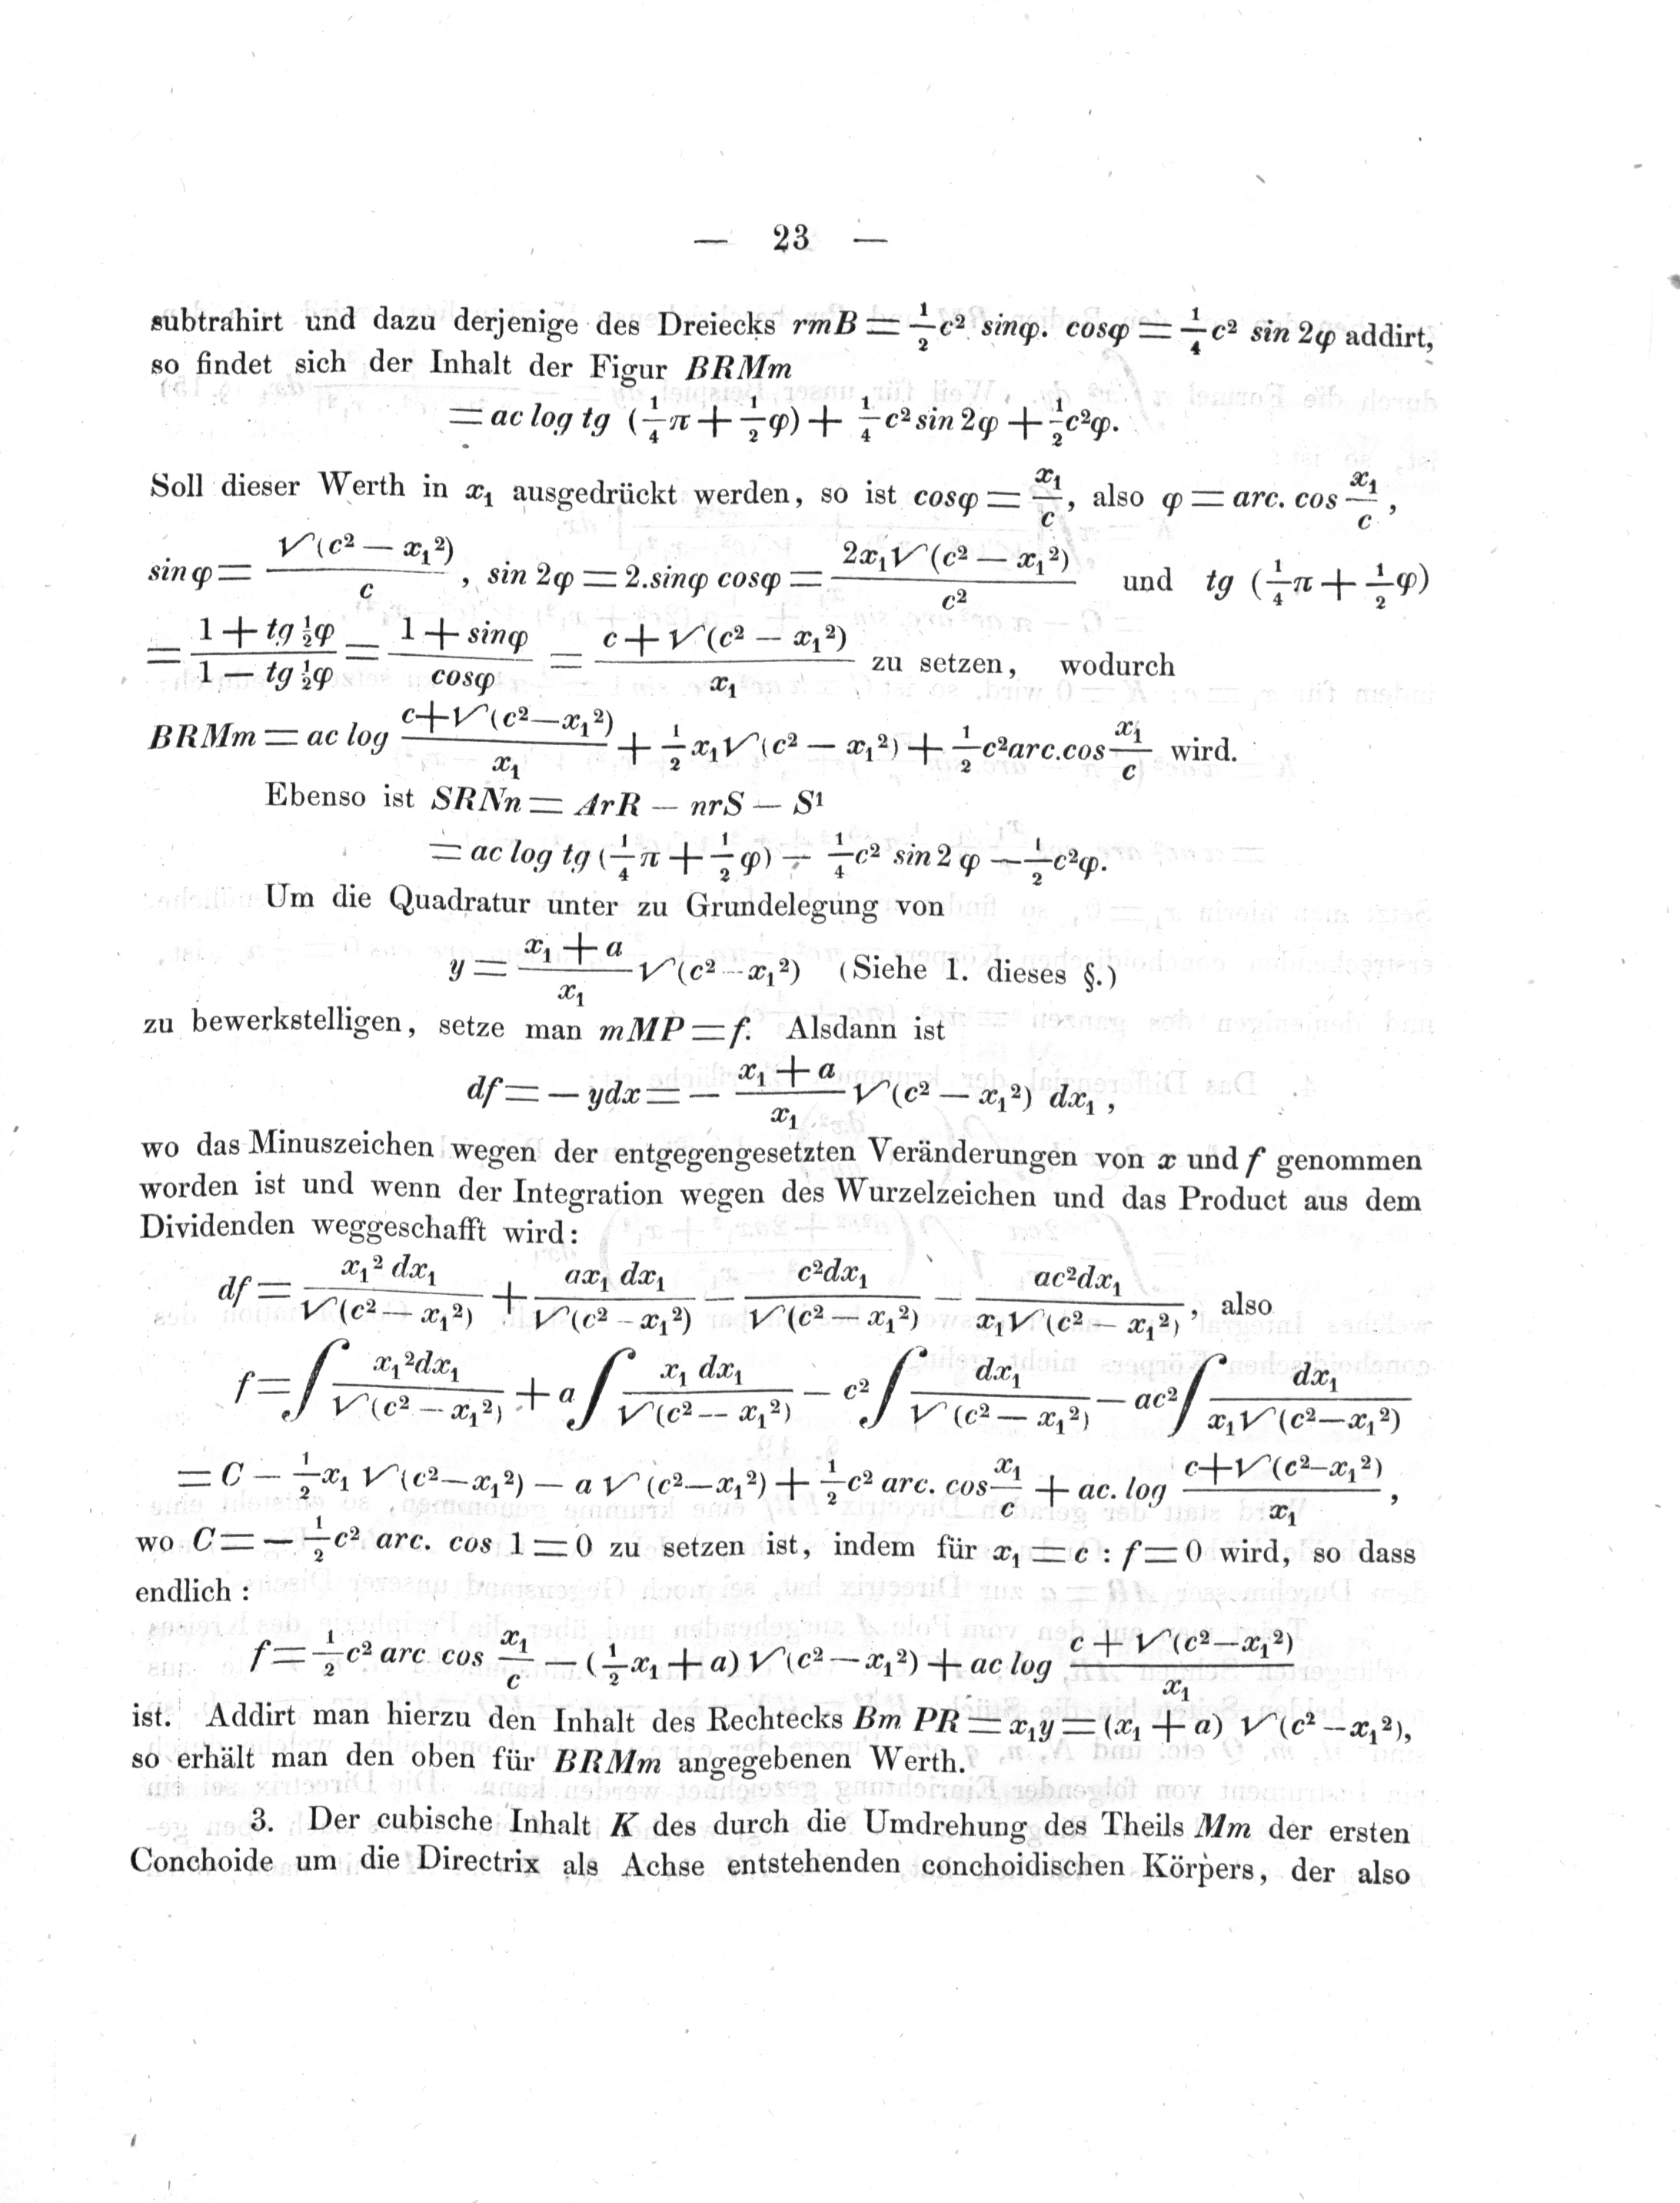 — 23 —
subtrahirt und dazu derjenige des Dreiecks rmB = 1/2 c² sinφ. cosφ = 1/4 c² sin 2φ addirt,
so findet sich der Inhalt der Figur BRMm
= ac log tg (1/4 π + 1/2 φ) + 1/4 c² sin 2φ + 1/2 c²φ.
Soll dieser Werth in x₁ ausgedrückt werden, so ist cosφ = x₁/c, also φ = arc. cos x₁/c,
sin φ = √(c² — x₁²)/c, sin 2φ = 2.sinφ cosφ = 2x₁√(c² — x₁²)/c² und tg (1/4 π + 1/2 φ)
= (1 + tg ½φ)/(1 — tg ½φ) = (1 + sinφ)/cosφ = (c + √(c² — x₁²))/x₁ zu setzen, wodurch
BRMm = ac log (c+√(c²—x₁²))/x₁ + 1/2 x₁√(c² — x₁²) + 1/2 c²arc.cos x₁/c wird.
Ebenso ist SRNn = ArR — nrS — S¹
= ac log tg (1/4 π + 1/2 φ) — 1/4 c² sin 2 φ — 1/2 c²φ.
Um die Quadratur unter zu Grundelegung von
y = (x₁ + a)/x₁ √(c² — x₁²) (Siehe 1. dieses §.)
zu bewerkstelligen, setze man mMP = f. Alsdann ist
df = — ydx = — (x₁ + a)/x₁ √(c² — x₁²) dx₁,
wo das Minuszeichen wegen der entgegengesetzten Veränderungen von x und f genommen
worden ist und wenn der Integration wegen des Wurzelzeichen und das Product aus dem
Dividenden weggeschafft wird:
df = x₁² dx₁/√(c² — x₁²) + ax₁ dx₁/√(c² — x₁²) — c²dx₁/√(c² — x₁²) — ac²dx₁/x₁√(c² — x₁²), also
f = ∫ x₁²dx₁/√(c² — x₁²) + a ∫ x₁ dx₁/√(c² — x₁²) — c² ∫ dx₁/√(c² — x₁²) — ac² ∫ dx₁/x₁√(c²—x₁²)
= C — 1/2 x₁ √(c²—x₁²) — a √(c²—x₁²) + 1/2 c² arc. cos x₁/c + ac. log (c+√(c²—x₁²))/x₁,
wo C = — 1/2 c² arc. cos 1 = 0 zu setzen ist, indem für x₁ = c : f = 0 wird, so dass
endlich:
f = 1/2 c² arc cos x₁/c — (1/2 x₁ + a) √(c² — x₁²) + ac log (c + √(c²—x₁²))/x₁
ist. Addirt man hierzu den Inhalt des Rechtecks Bm PR = x₁y = (x₁ + a) √(c² — x₁²),
so erhält man den oben für BRMm angegebenen Werth.
3. Der cubische Inhalt K des durch die Umdrehung des Theils Mm der ersten
Conchoide um die Directrix als Achse entstehenden conchoidischen Körpers, der also